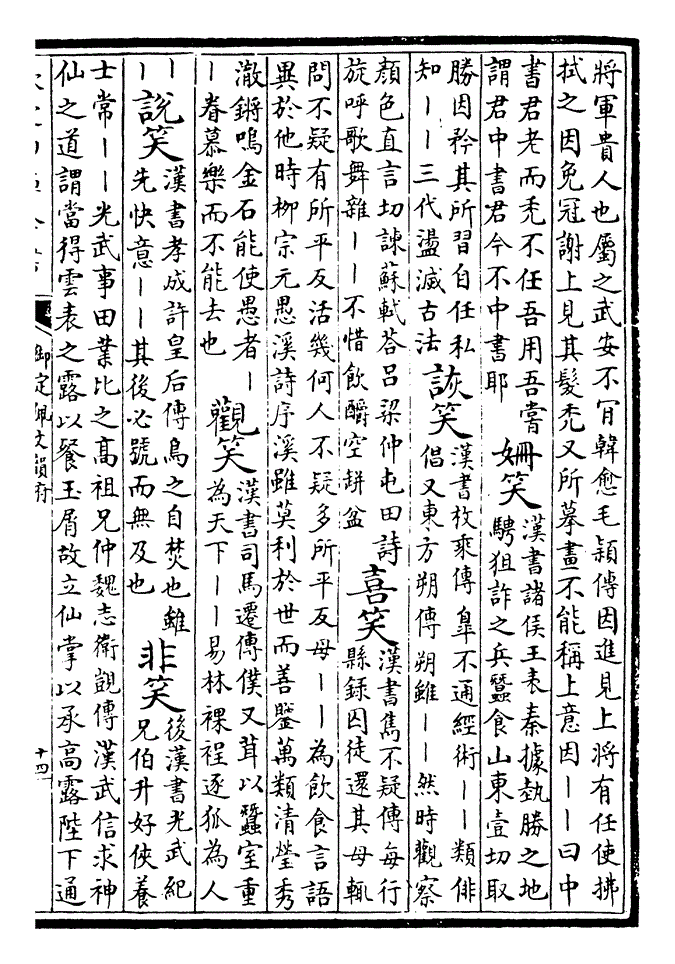 將軍貴人也屬之武安不肎韓愈毛穎傳因進見上將有任使拂
拭之因免冠謝上見其髮禿又所摹畫不能稱上意因丨丨曰中
書君老而禿不任吾用吾嘗
謂君中書君今不中書耶
姍笑
漢書諸侯王表秦據埶勝之地
騁狙詐之兵蠶食山東壹切取
勝因矜其所習自任私
知丨丨三代盪滅古法
詼笑
漢書枚乘傳臯不通經術丨丨類俳
倡又東方朔傳朔雖丨丨然時觀察
顏色直言切諫蘇軾荅呂梁仲屯田詩
旋呼歌舞雜丨丨不惜飲釂空缾盆
喜笑
漢書雋不疑傳每行
縣錄囚徒還其母輒
問不疑有所平反活幾何人不疑多所平反母丨丨為飲食言語
異於他時柳宗元愚溪詩序溪雖莫利於世而善鑒萬類清瑩秀
澈鏘鳴金石能使愚者丨
丨眷慕樂而不能去也
觀笑
漢書司馬遷傳僕又茸以蠶室重
為天下丨丨易林裸裎逐狐為人
丨
丨
說笑
漢書孝成許皇后傳鳥之自焚也雖
先快意丨丨其後必號而無及也
非笑
後漢書光武紀
兄伯升好俠養
士常丨丨光武事田業比之高祖兄仲魏志衛覬傳漢武信求神
仙之道謂當得雲表之露以餐玉屑故立仙掌以承高露陛下通
御定佩文韻府
十四